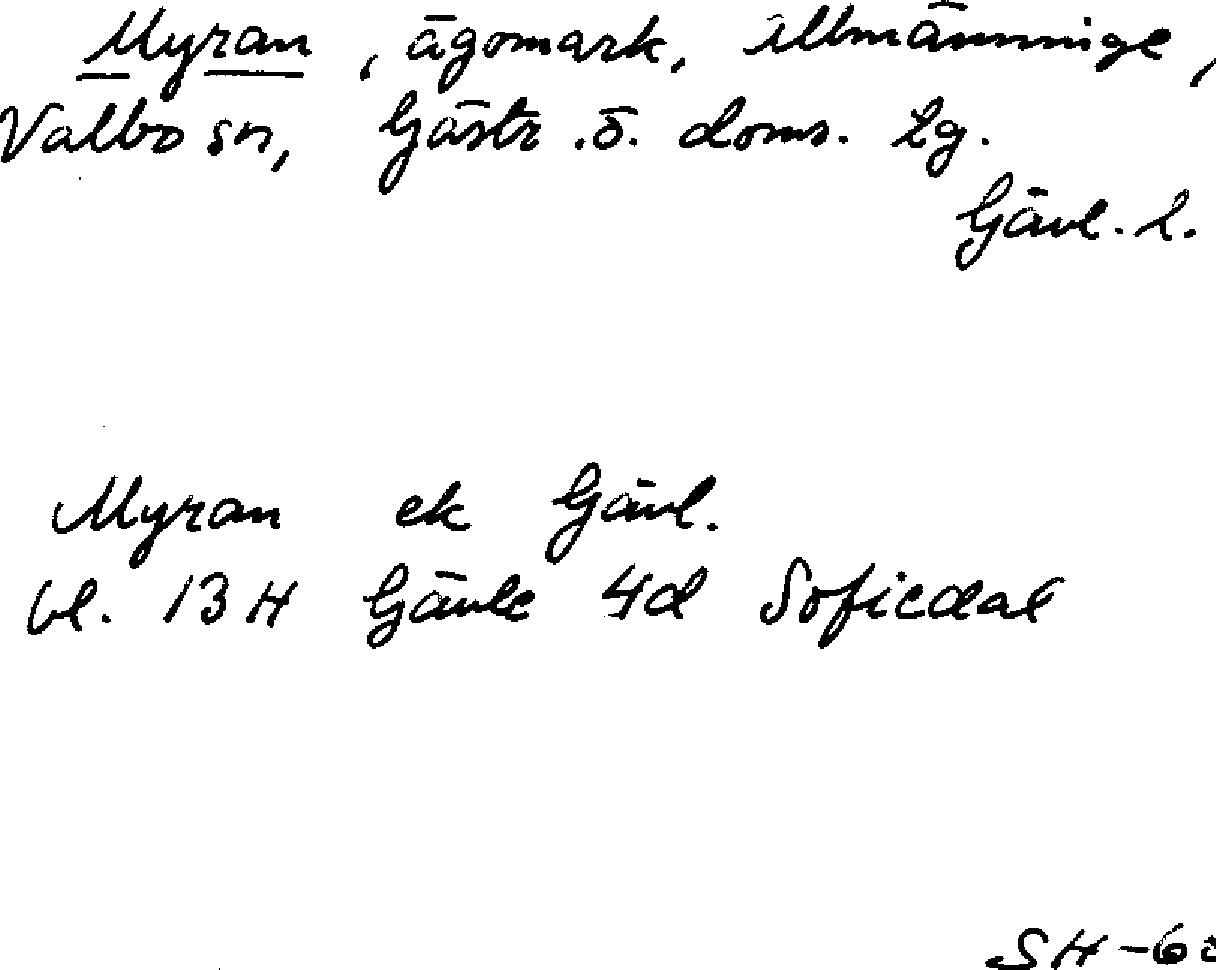 Myran, ägomark, Allmänninge,
Valbo sn, Gästr. ö. doms. lg.
Gävl. l.
Myran ek Gävl.
bl. 13H Gävle 4d Sofiedal
SH-6